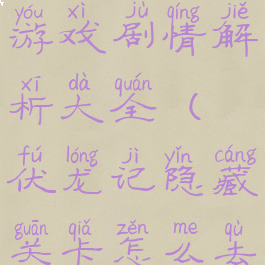 yóu xì jù qíng jiě
游戏剧情解
xī dà quán
析大全（
fú lóng jì yǐn cáng
伏龙记隐藏
guān qiǎ zěn me qù
关卡怎么去